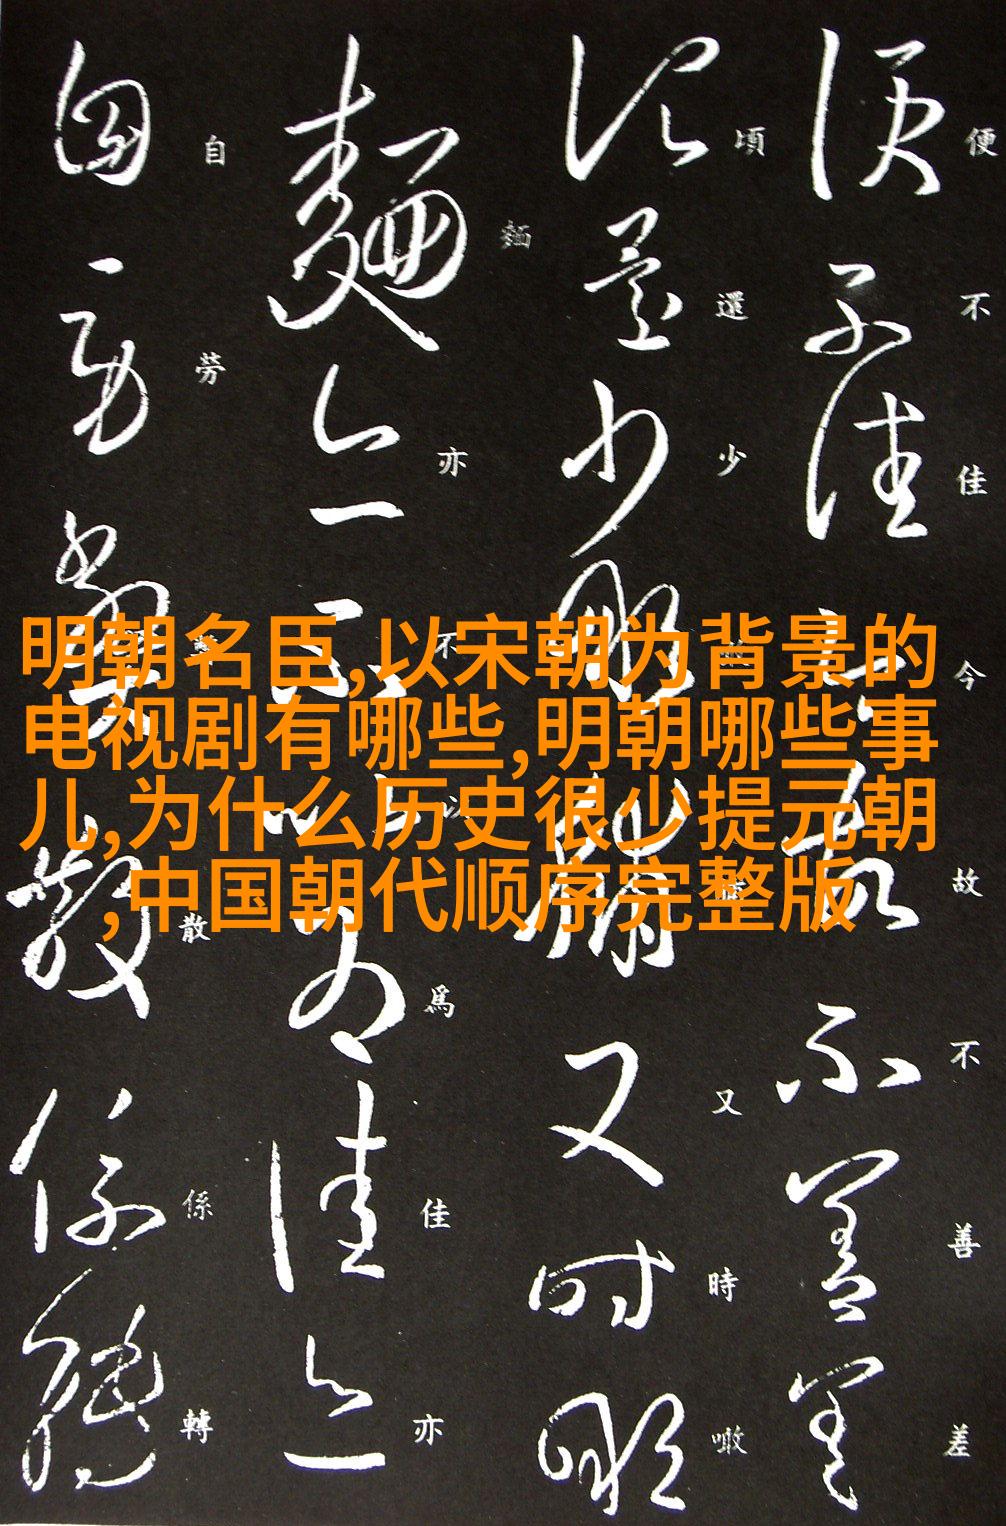 明朝名臣,以宋朝为背景的
电视剧有哪些,明朝哪些事
儿,为什么历史很少提元朝
,中国朝代顺序完整版
便不佳今故不善差
頃還少噉脯又時噉
麵亦不以爲佳亦
自勞散係轉